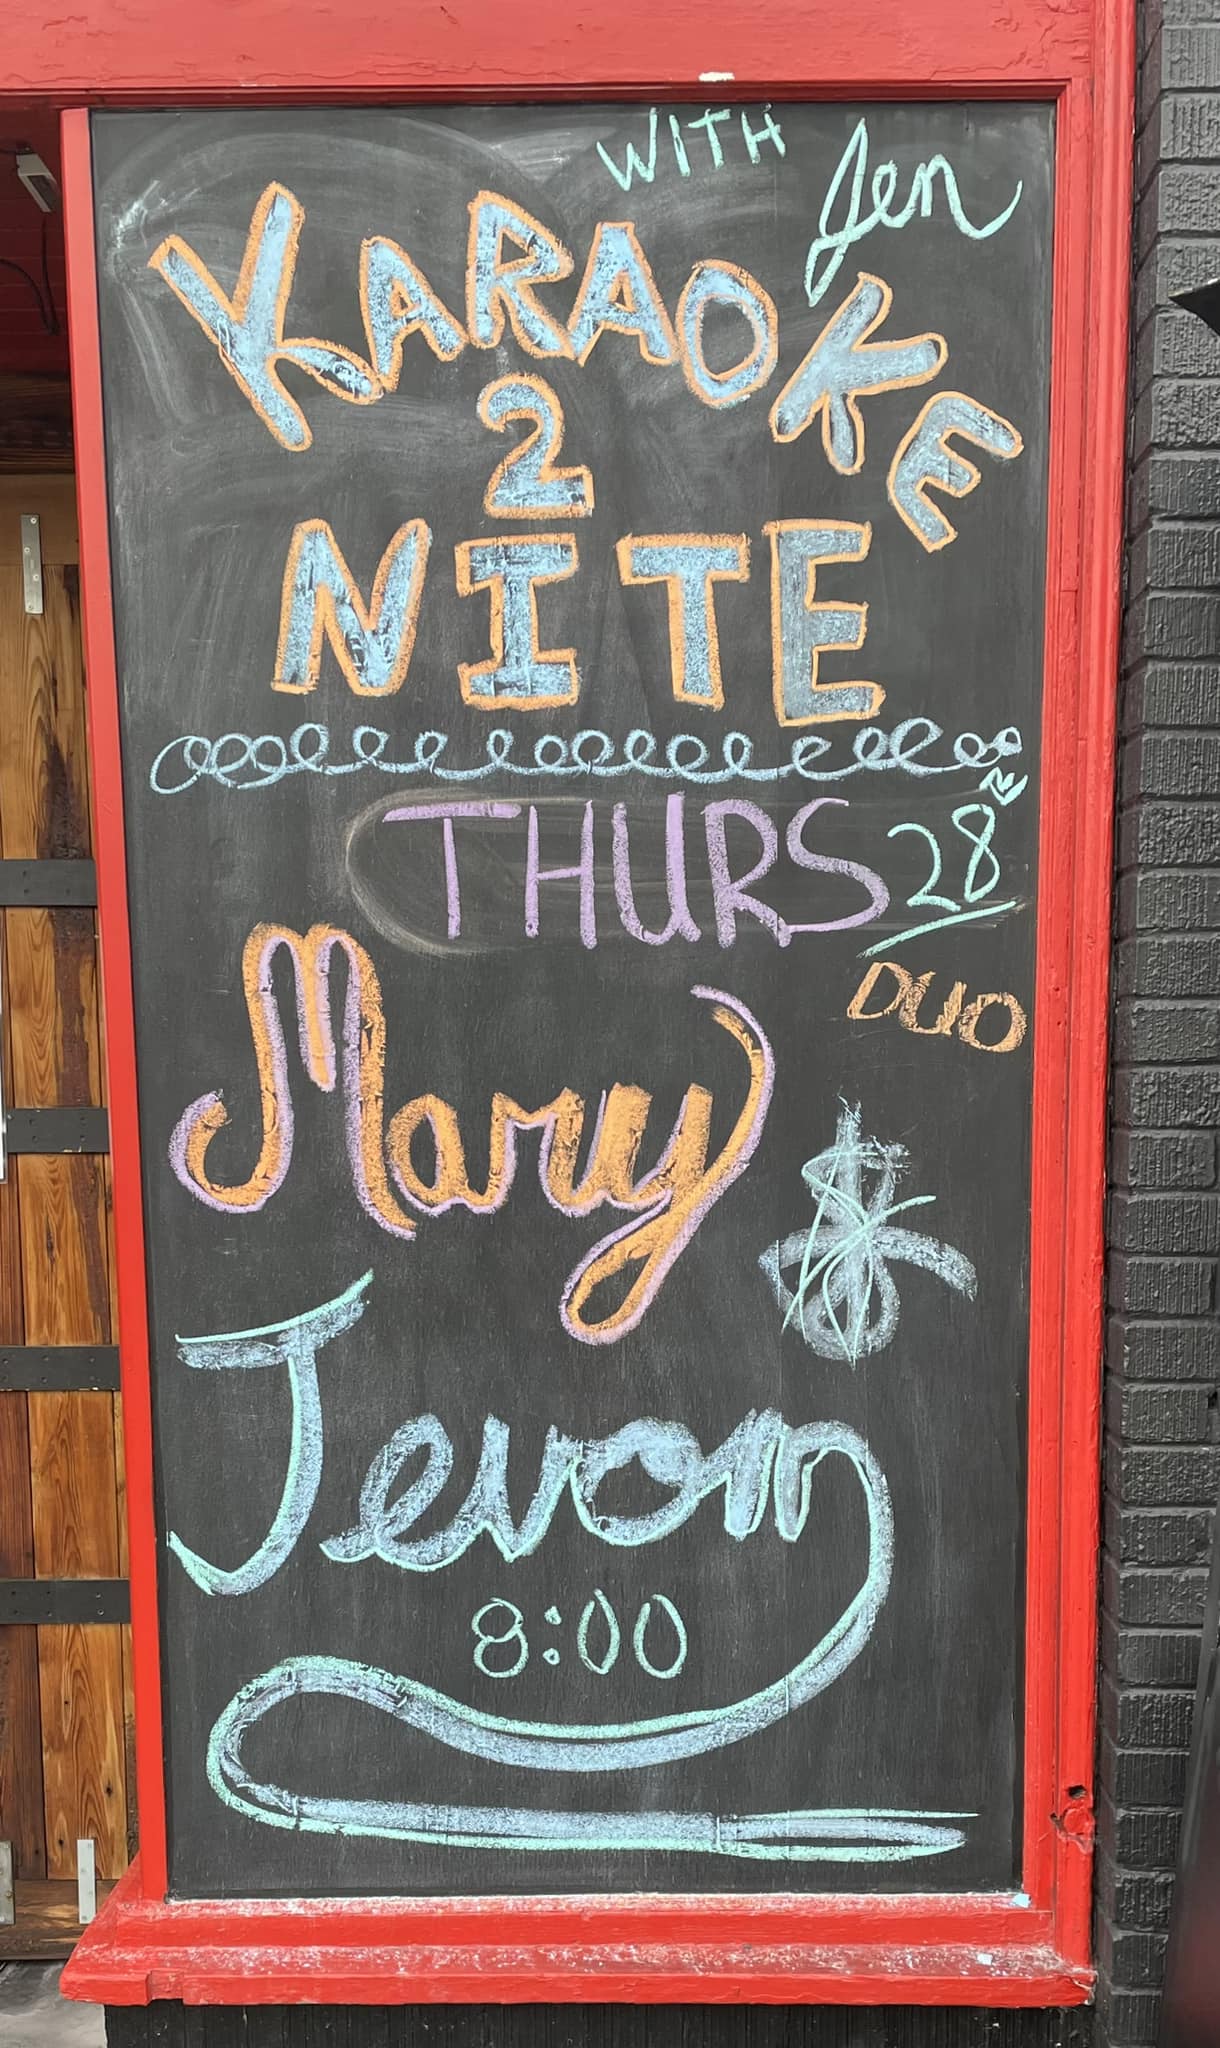 WITH Jen
KARAOKE
2
NITE
THURS 28
DUO
Mary
&
Jevon
8:00